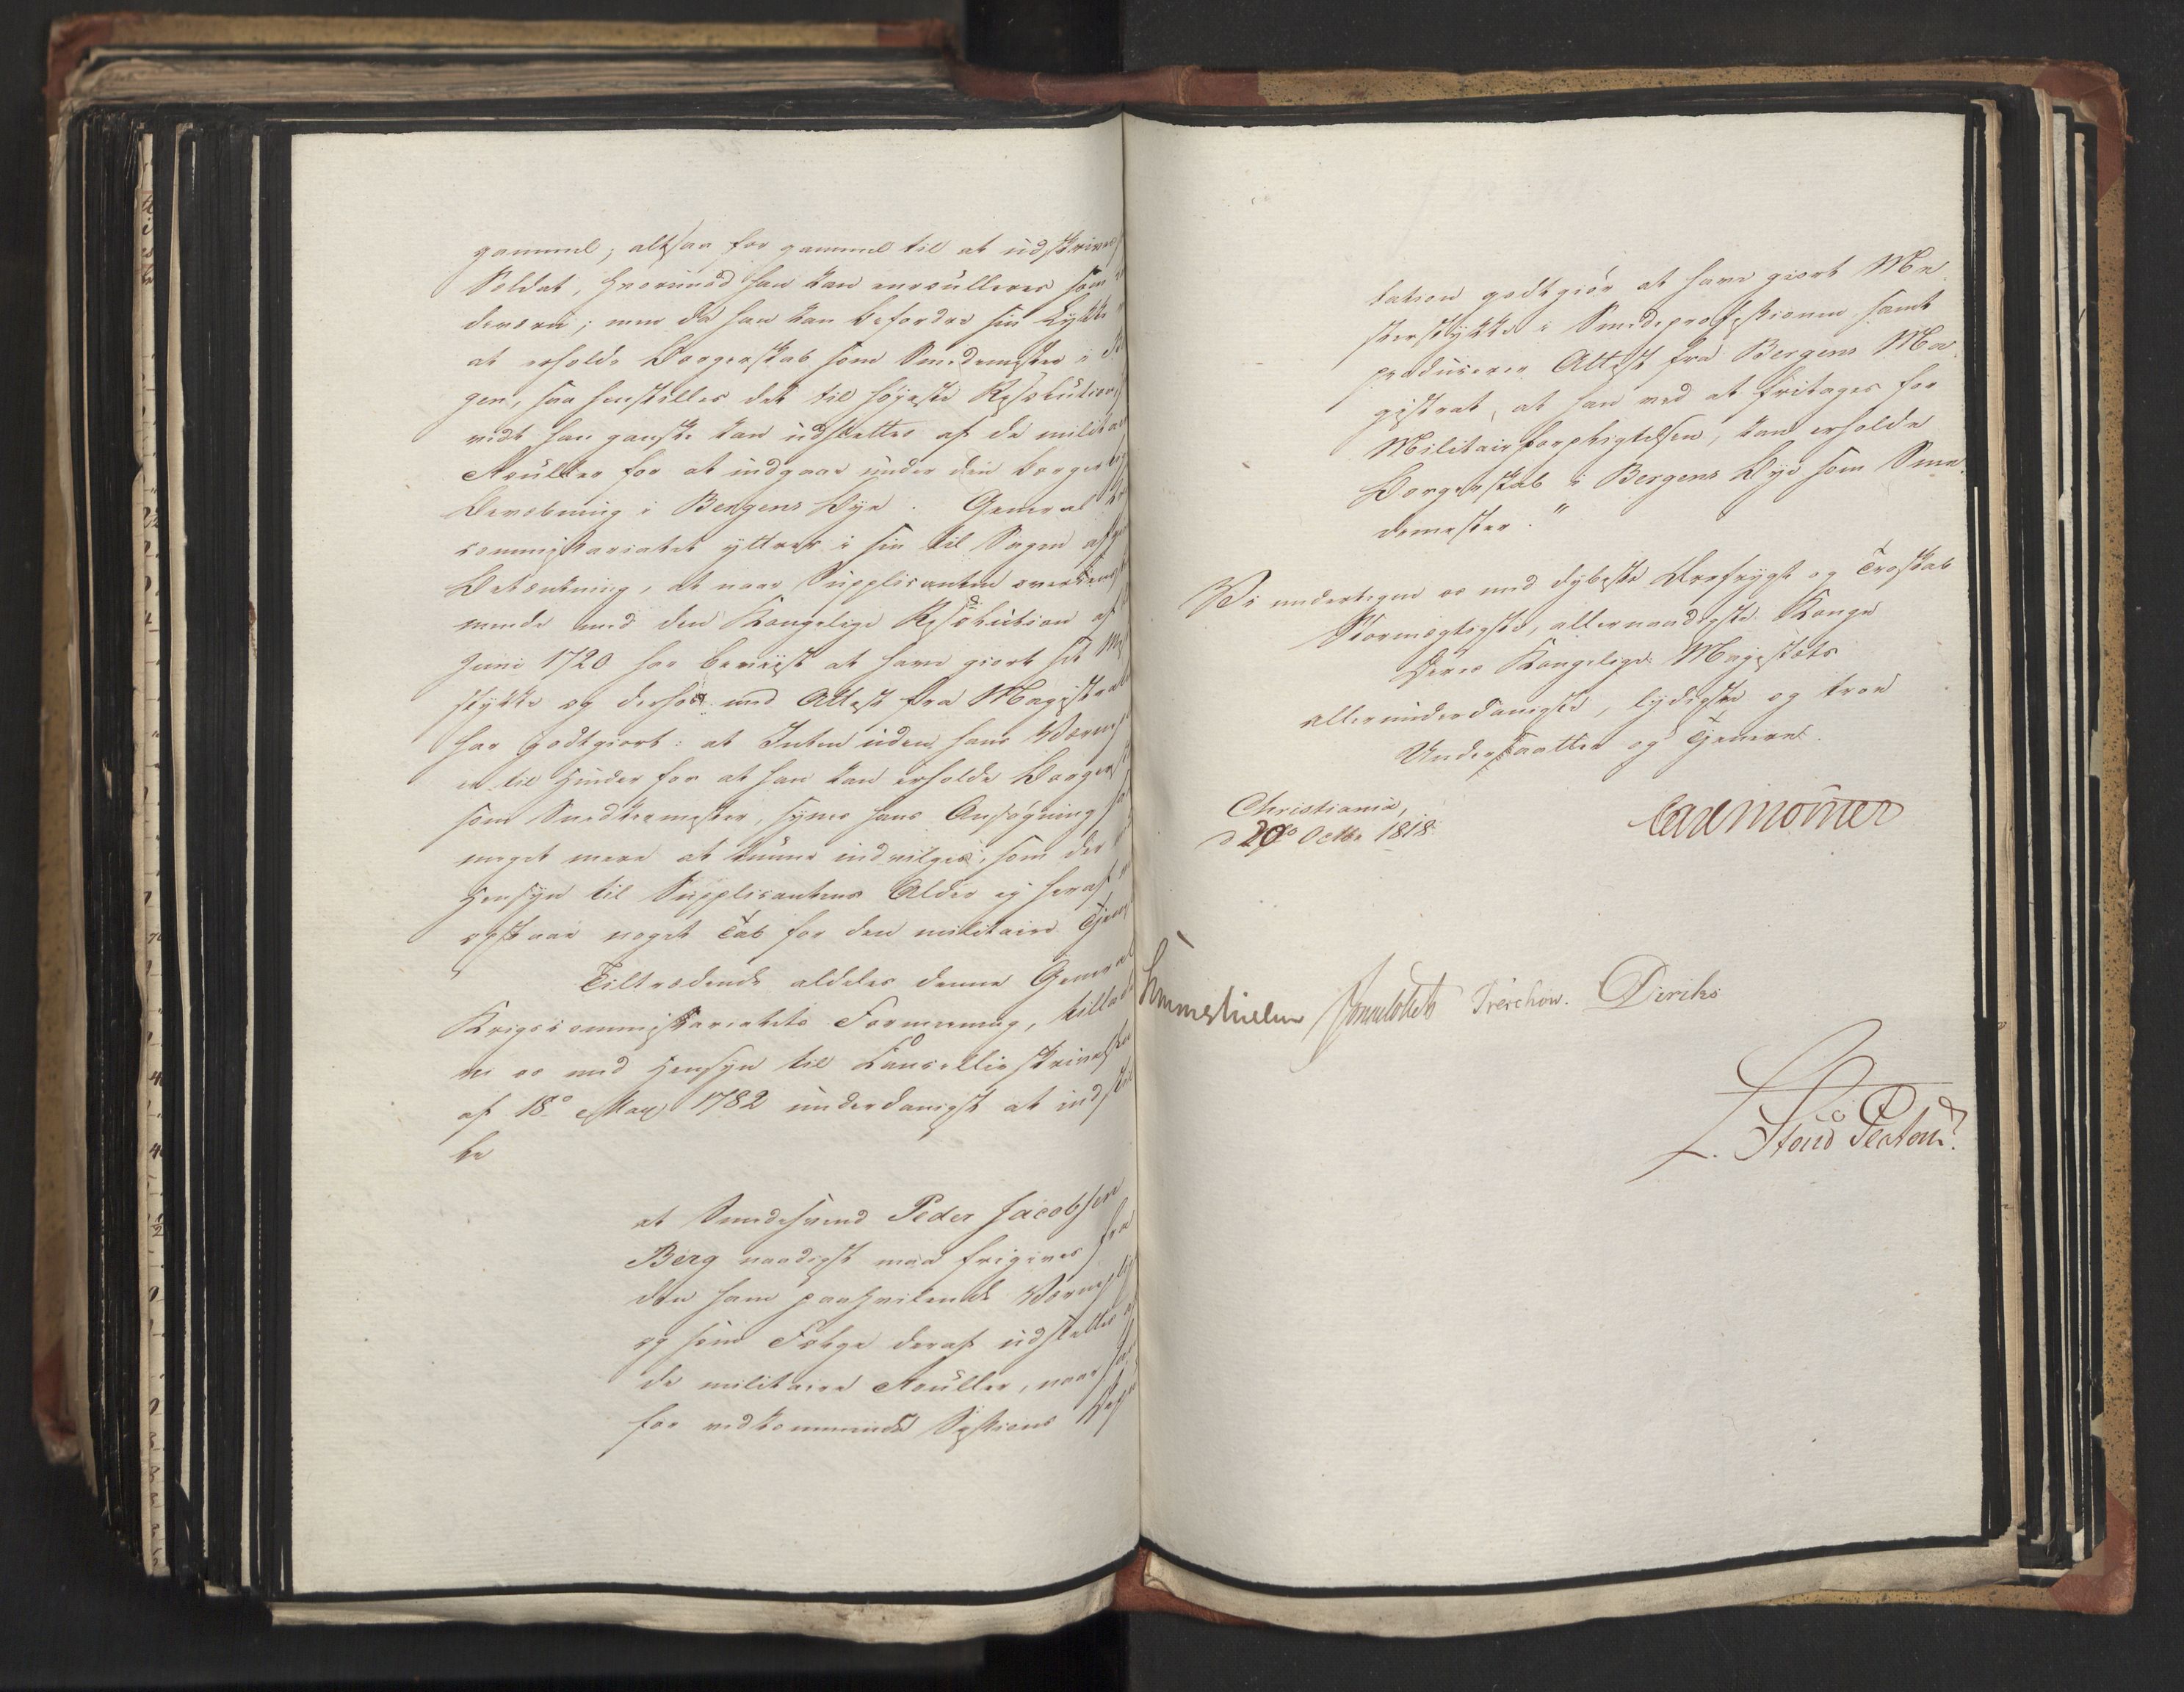 gammel; altsaa for gammel til at udskrives
Soldat, hvorimod han kan enroulleres som
deværn; men da han kan befordre sin Lykke
at erholde Borgerskab som Smedemester i
gen, saa henstilles det til høyeste Resolution,
vidt han ganske kan udslettes af de militai
Rouller for at indgaae under den borger
Bevæbning i Bergens Bye. General
commissariatet yttrer i sin til Sagen
Betænkning, at naar Supplicanten overeens
mende med den Kongelige Resolution af
Juni 1720 har beviist at have giort sit
stykke og derhos med Attest fra Magistra
har godtgiort: at Inten uden hans Værne
er til Hinder for at han kan erholde Borger
som Smedemester, synes hans Ansøgning
meget mere at kunne indvilges, som der
Hensyn til Supplicantens Alder ej heraf
opstaae noget Tab for den militaire
Tiltrædende aldeles denne General
Krigscommissariatets Formening, tillade
vi os med Hensyn til Cancelliskrivelse
af 18de May 1782 underdanigst at indstil
le
at Smedesvend Peder Jacobsen
Berg naadigst maa frigives fra
den ham paahvilende Værnepli
og som Følge deraf udslettes
de militaire Rouller, naar
for vedkommende Sessions
tation godtgiør at have giort Me-
sterstykke i Smedeprofessionen samt
producerer Attest fra Bergens Ma-
gistrat, at han ved at fritages for
Militairforpligtelsen, kan erholde
Borgerskab i Bergens Bye som Sme-
demester."
Vi undertegne os med dybeste Ærefrygt og Troskab
Stormægtigste, allernaadigste Konge
Deres Kongelige Majestæts
allerunderdanigste, lydigste og troe
Undersaatter og Tjenere.
Christiania,
d 20de Octbr 1818.
Carl Mörner
Sommerhielm Treschow. Diriks